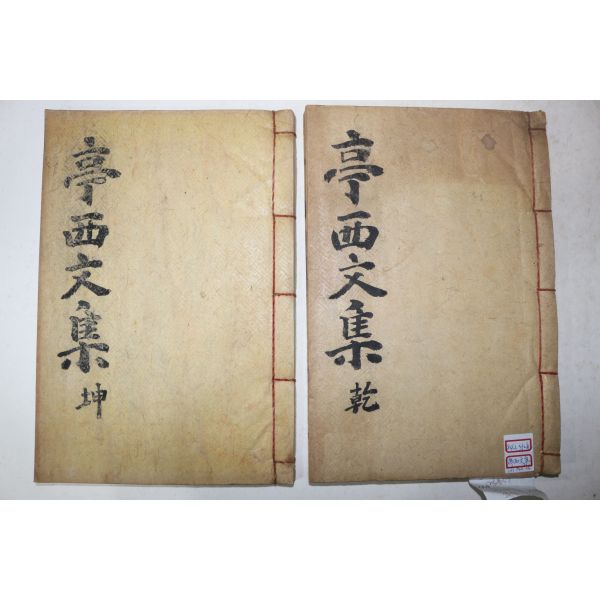 亭西文集
乾
亭西文集
坤